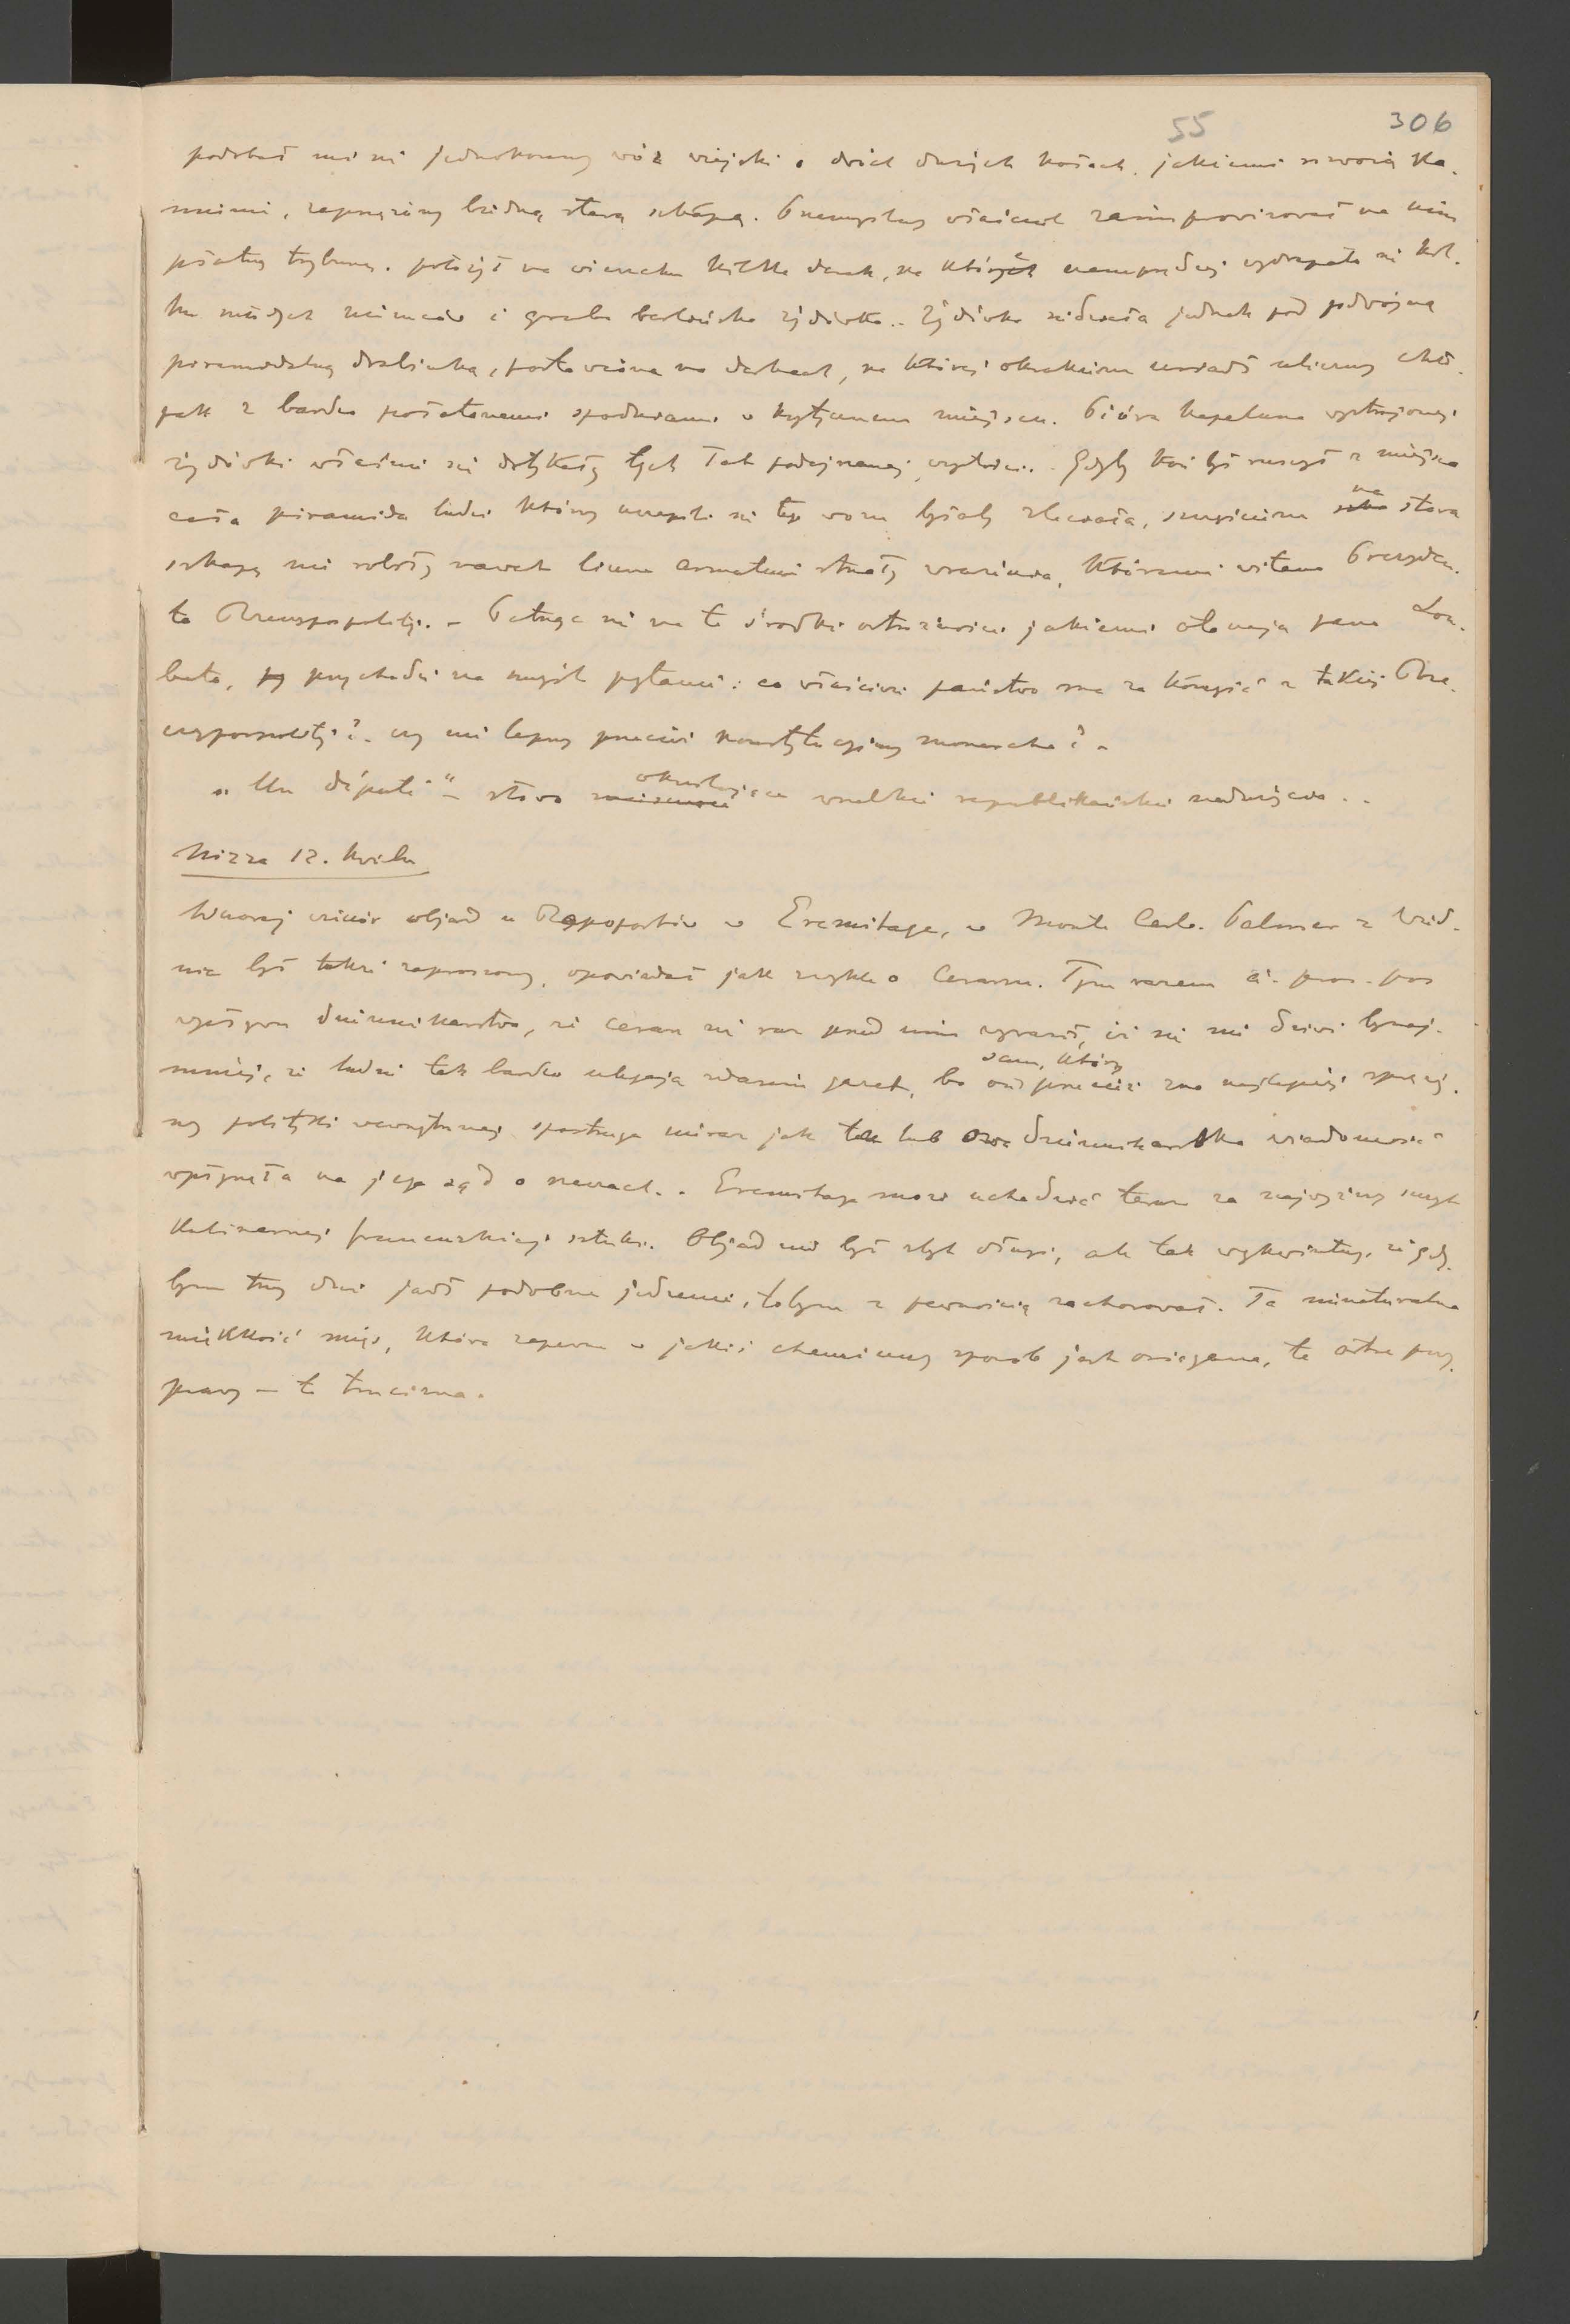 55 306
podobał mi się jednokonny wóz wiejski o dwóch dużych kołach, jakiemi zwożą ka-
mienie, zaprzężony biedną starą szkapą. Przemyślny właściciel zaimprowizował na nim
płatną trybunę, położył na wierzchu kilka desek, na których naprzedniej wydrapało się kil-
ku młodych Niemców i gruba berlińska żydówka.. Żydówka siedziała jednak pod podwójną
piramidalną drabinką, postawioną na deskach, na której okrakiem usiadł uliczny chło-
pak z bardzo połatanemi spodniami w krytycznem miejscu. Pióra kapelusza wystrojonej
żydówki właśnie się dotykały tych łat podejrzanej czystości. Gdyby koń był ruszył z miejsca
cała piramida ludzi którzy uczepili się tego wozu byłaby zleciała, szczęściem na stara
szkapę nie robiły nawet liczne armatnie strzały wrażenia, któremi witano Prezyden-
ta Rzeczypospolitej. – Patrząc się na te środki ostrożności jakiemi otaczają pana Lou-
beta, przychodzi na myśl pytanie: co właściwie państwo ma za korzyść z takiej Rze-
czypospolitej? czy nie lepszy przecież konstytucyjny monarcha? –
„Un député" – słowo określające wszelkie republikańskie nadużycia..
Nizza 12. Kwietn
Wczoraj wieczór objad u Rappoportów w Eremitage, w Monte Carlo. Palmer z Wied-
nia był także zaproszony, opowiadał jak zwykle o Cesarzu. Tym razem à propos
wpływu dziennikarstwa, że cesarz nie raz przed nim wyraził, iż się nie dziwi bynaj-
mniej, że ludzie tak bardzo ulegają zdaniom gazet, bo on sam, który przecież zna najlepiej spręży-
ny polityki wewnętrznej spostrzega nieraz jak ta lub owa dziennikarska wiadomość
wpłynęła na jego sąd o rzeczach.. Eremitage może uchodzić teraz za najwyższy szczyt
kulinarnej francuzkiej sztuki. Objad nie był zbyt długi, ale tak wykwintny, że gdy-
bym trzy dni jadł podobne jedzenie, tobym z pewnością zachorował. Ta nienaturalna
miękkość mięs, która zapewne w jakiś chemiczny sposób jest osiągana, te ostre przy-
prawy – to trucizna.